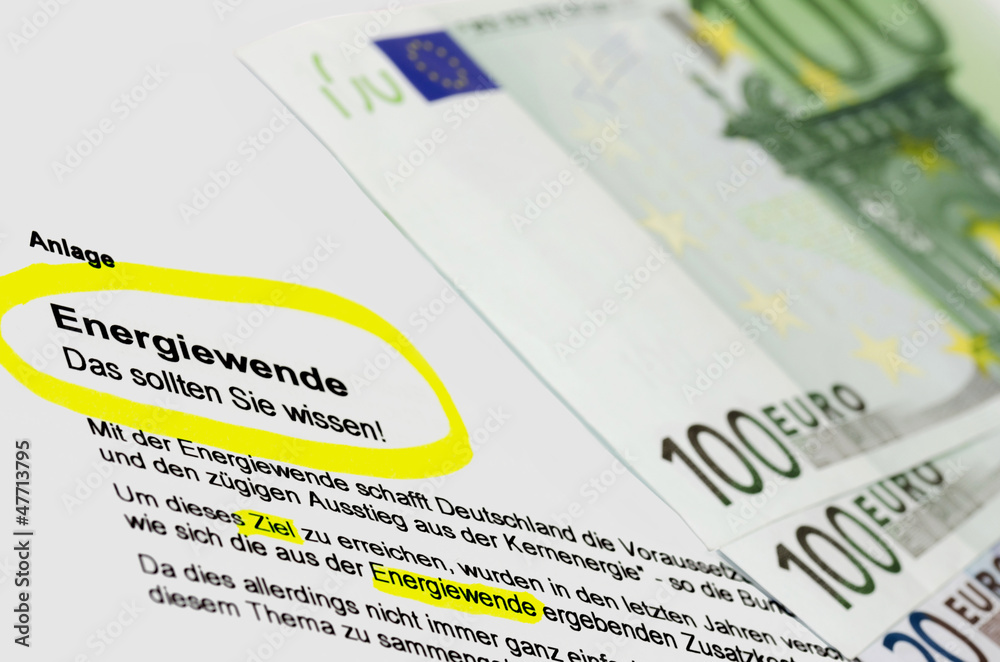 Anlage
Energiewende
Das sollten Sie wissen!
Mit der Energiewende schafft Deutschland die Vorausset
und den zügigen Ausstieg aus der Kernenergie" - so die Bun
Um dieses Ziel zu erreichen, wurden in den letzten Jahren versc
wie sich die aus der Energiewende ergebenden Zusatzkos
Da dies allerdings nicht immer ganz einf
diesem Thema zu sammenge
100 EURO
100 EURO
20 EURO
Adobe Stock | #47713795